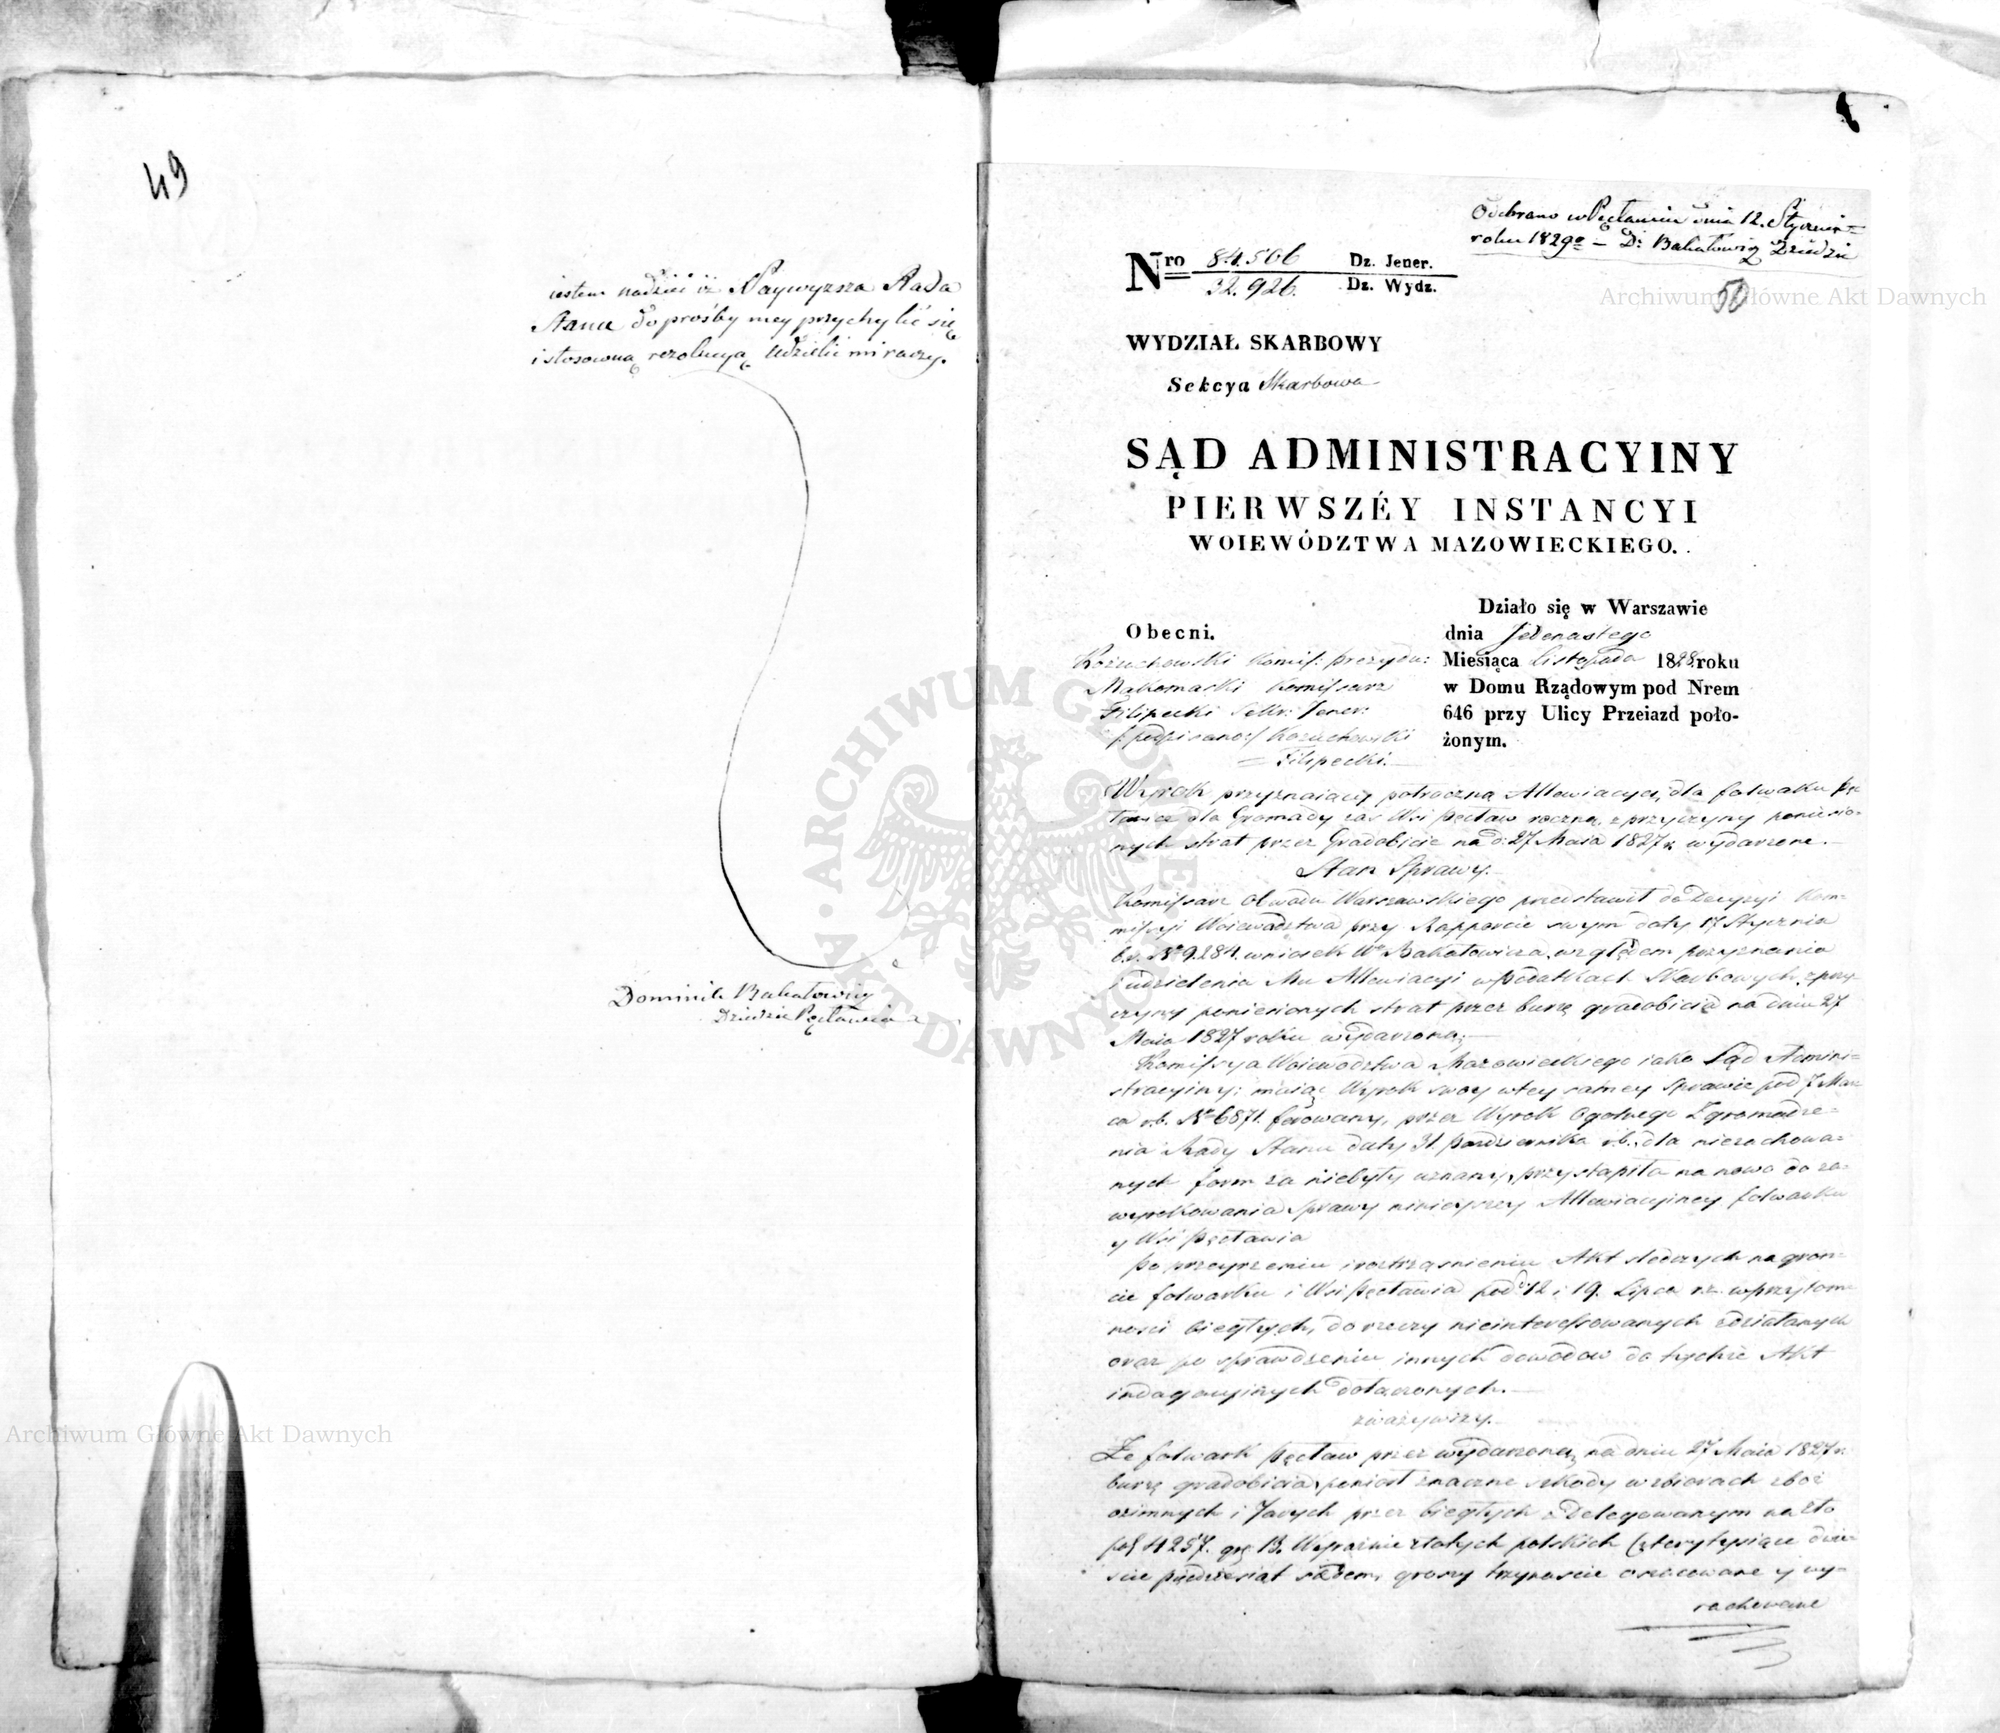 49
iestem nadziei iż Naywyższa Rada
Stanu do prośby mey przychylić się
i stosowną rezolucyą udzielić mi raczy.
Dominik Bakałowicz
Dziedzic Pęcławia
Odebrano w Pęcławiu dnia 12. Stycznia
roku 1829º – D: Bakałowicz Dziedzic
50
Nro 84.506 Dz. Jener.
32.926. Dz. Wydz.
WYDZIAŁ SKARBOWY
Sekcya Skarbowa
SĄD ADMINISTRACYINY
PIERWSZÉY INSTANCYI
WOIEWÓDZTWA MAZOWIECKIEGO.
Obecni.
Kożuchowski Komis: prezydu:
Makomaski Komissarz
Filipecki Sekr: Jener:
/:podpisano:/ Kożuchowski
Filipecki.
Działo się w Warszawie
dnia Jedenastego
Miesiąca Listopada 1828 roku
w Domu Rządowym pod Nrem
646 przy Ulicy Przeiazd poło-
żonym.
Wyrok przyznaiący półroczną Allewiacyą, dla folwarku Pę-
cławia dla Gromady zaś Wsi Pęcław roczną, z przyczyny poniesio-
nych strat przez Gradobicie na d. 27 Maia 1827 r. wydarzone.
Stan Sprawy.
Komissarz Obwodu Warszawskiego przedstawił do Decyzyi Kom-
missyi Woiewództwa przy Rapporcie swym daty 17 Stycznia
b.r. Nº 9.284. wniosek Wº Bakałowicza, względem przyznania
i udzielenia Mu Allewiacyi w Podatkach Skarbowych, z przy-
czyny poniesionych strat przez burzę gradobicia na dniu 27
Maia 1827 roku wydarzoną;
Komissya Woiewództwa Mazowieckiego iako Sąd Admini-
stracyiny; maiąc Wyrok swoy w tey samey Sprawie pod 7 Mar-
ca r.b. Nº 6871. ferowany, przez Wyrok Ogolnego Zgromadze-
nia Rady Stanu daty 31. Października r.b. dla niezachowa-
nych form za niebyły uznany, przystąpiła na nowo do za-
wyrokowania Sprawy ninieyszey Allewiacyiney folwarku
y Wsi Pęcławia
Po przeyrzeniu i roztrząśnieniu Akt śledczych na grun-
cie folwarku i Wsi Pęcławia pod d. 12 i 19. Lipca r.z. w przytom-
ności biegłych, do rzeczy nieinteressowanych zdziałanych
oraz po sprawdzeniu innych dowodów do tychże Akt
indagacyinych dołączonych.
zważywszy.
Że folwark Pęcław przez wydarzoną na dniu 27 Maia 1827 r.
burzę gradobicia, poniósł znaczne szkody w zbiorach zbóż
ozimnych i Jarych przez biegłych z Delegowanym na zło
pol 4257. gr. 13. Wyraźnie złotych polskich Cztery tysiące dwie-
ście pięćdziesiąt siedem, groszy trzynaście oszacowane y wy-
rachowane
Archiwum Główne Akt Dawnych
Archiwum Główne Akt Dawnych
ARCHIWUM GŁÓWNE AKT DAWNYCH